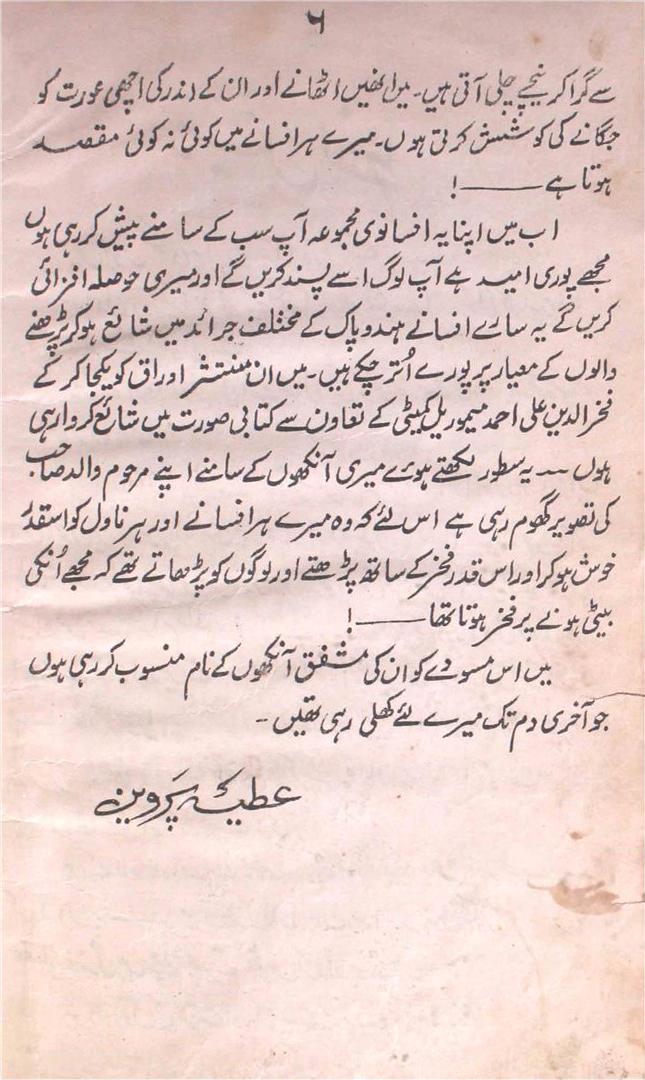 ۶
سے گرا کر نیچے چلی آتی ہیں۔ میں انھیں اٹھانے اور ان کے اندر کی اچھی عورت کو
جگانے کی کوشش کرتی ہوں۔ میرے ہر افسانے میں کوئی نہ کوئی مقصد
ہوتا ہے ——— !
اب میں اپنا یہ افسانوی مجموعہ آپ سب کے سامنے پیش کر رہی ہوں
مجھے پوری امید ہے آپ لوگ اسے پسند کریں گے اور میری حوصلہ افزائی
کریں گے یہ سارے افسانے ہند و پاک کے مختلف جرائد میں شائع ہو کر پڑھنے
والوں کے معیار پر پورے اُتر چکے ہیں۔ میں ان منتشر اوراق کو یکجا کر کے
فخرالدین علی احمد میموریل کمیٹی کے تعاون سے کتابی صورت میں شائع کروا رہی
ہوں —— یہ سطور لکھتے ہوئے میری آنکھوں کے سامنے اپنے مرحوم والد صاحب
کی تصویر گھوم رہی ہے اس لئے کہ وہ میرے ہر افسانے اور ہر ناول کو اسقدر
خوش ہو کر اور اس قدر فخز کے ساتھ پڑھتے اور لوگوں کو پڑھاتے تھے کہ مجھے اُنکی
بیٹی ہونے پر فخر ہوتا تھا ——— !
میں اس مسودے کو ان کی مشفق آنکھوں کے نام منسوب کر رہی ہوں
جو آخری دم تک میرے لئے کھلی رہی تھیں ۔۔
عطیہ پَروین